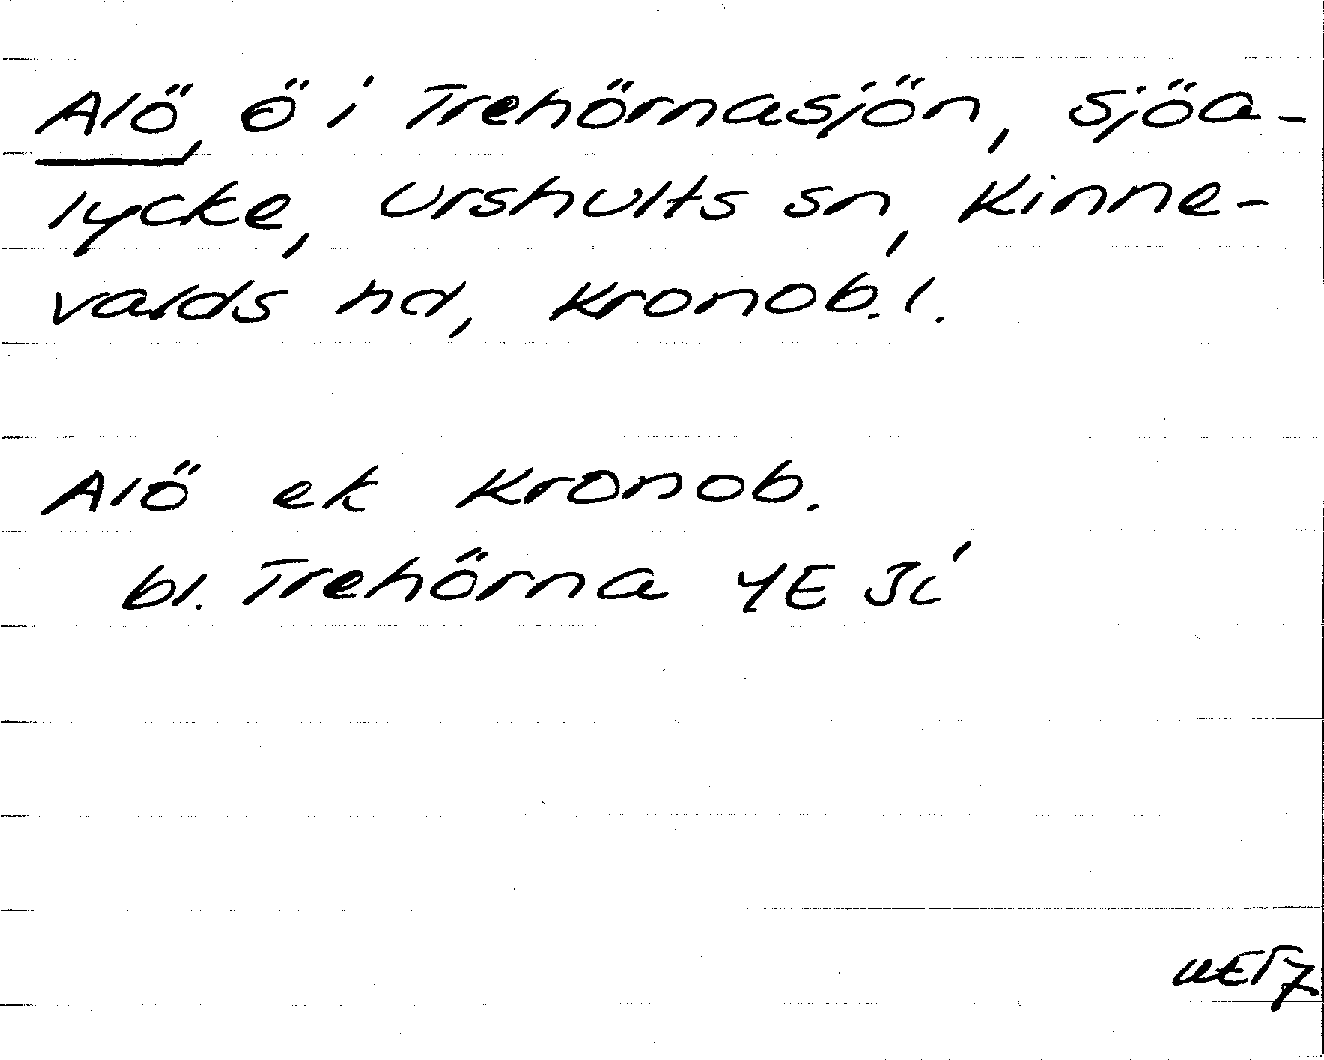 Alö, ö i Trehörnasjön, Sjöa-
lycke, Urshults sn, Kinne-
valds hd, Kronob. l.
Alö ek Kronob.
bl. Trehörna 4E